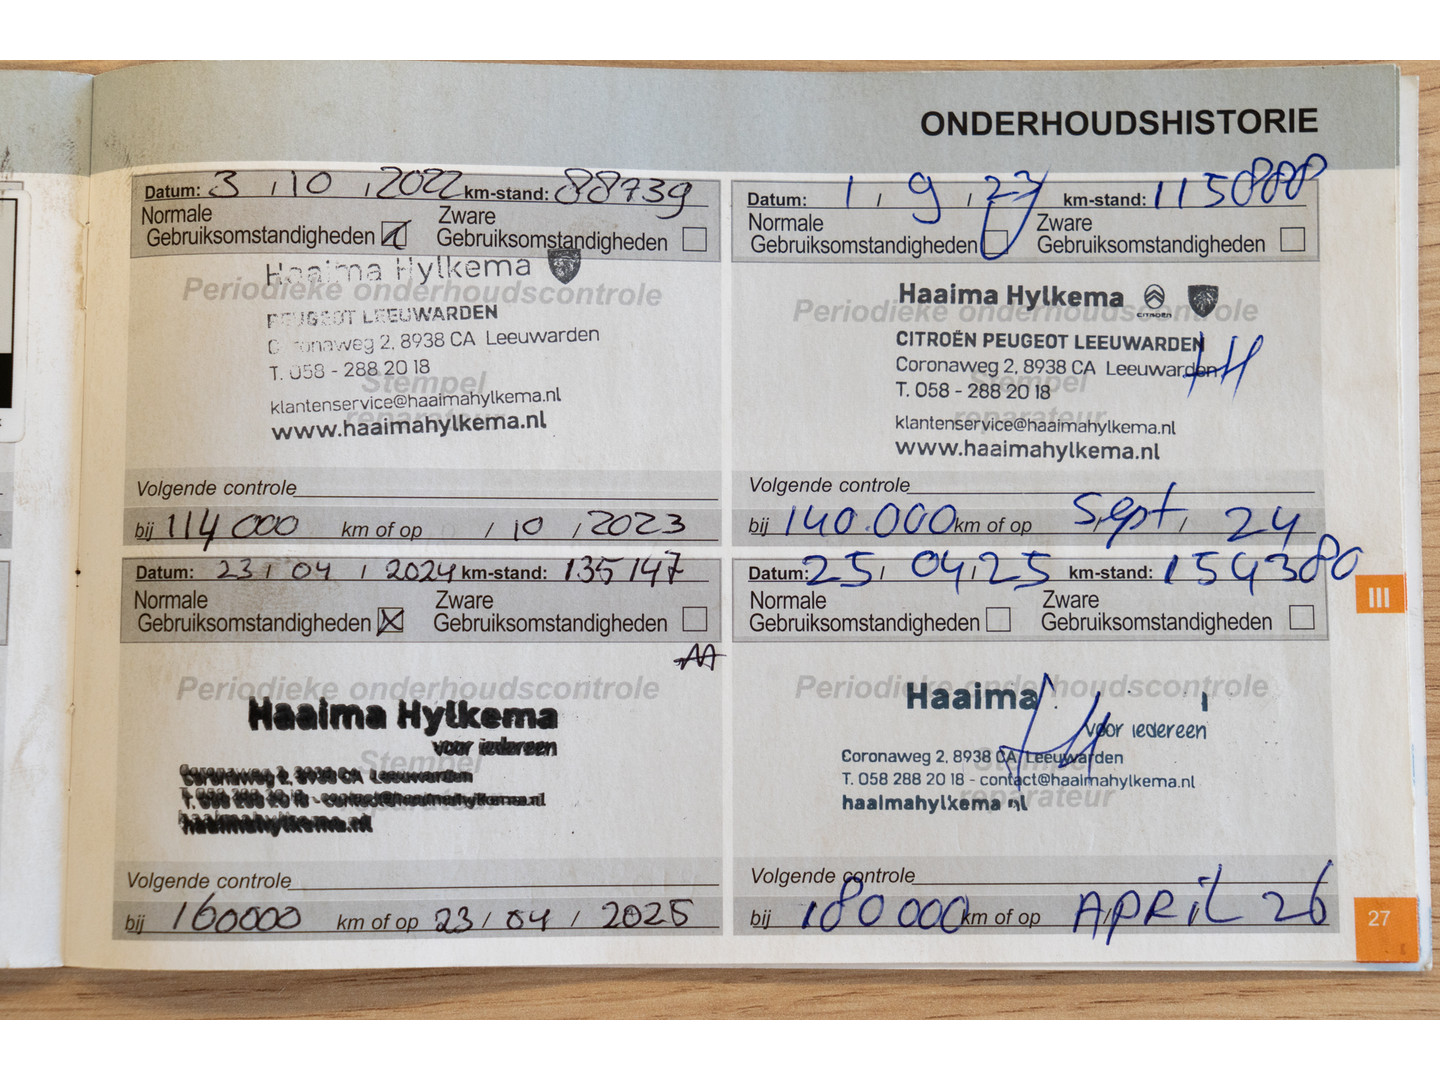 ONDERHOUDSHISTORIE
Datum: 3 / 10 / 2022 km-stand: 88739
Normale
Gebruiksomstandigheden
Zware
Gebruiksomstandigheden
Haaima Hylkema
Periodieke onderhoudscontrole
PEUGEOT LEEUWARDEN
Coronaweg 2, 8938 CA Leeuwarden
T. 058 - 288 20 18
Stempel
klantenservice@haaimahylkema.nl
reparateur
www.haaimahylkema.nl
Volgende controle
bij 114000 km of op / 10 / 2023
Datum: 1 / 9 / 23 km-stand: 115888
Normale
Gebruiksomstandigheden
Zware
Gebruiksomstandigheden
Haaima Hylkema
CITROËN
Periodieke onderhoudscontrole
CITROËN PEUGEOT LEEUWARDEN
Coronaweg 2, 8938 CA Leeuwarden
T. 058 - 288 20 18
Stempel
reparateur
klantenservice@haaimahylkema.nl
www.haaimahylkema.nl
Volgende controle
bij 140.000 km of op Sept / 24
Datum: 23 / 04 / 2024 km-stand: 135147
Normale
Gebruiksomstandigheden
Zware
Gebruiksomstandigheden
Periodieke onderhoudscontrole
Haaima Hylkema
voor iedereen
Stempel
Coronaweg 2, 8938 CA Leeuwarden
T. 058 288 20 18 - contact@haaimahylkema.nl
reparateur
haaimahylkema.nl
Volgende controle
bij 160000 km of op 23 / 04 / 2025
Datum: 25 / 04 / 25 km-stand: 154380
Normale
Gebruiksomstandigheden
Zware
Gebruiksomstandigheden
Periodieke onderhoudscontrole
Haaima
voor iedereen
Coronaweg 2, 8938 CA Leeuwarden
Stempel
T. 058 288 20 18 - contact@haaimahylkema.nl
reparateur
haaimahylkema.nl
Volgende controle
bij 180000 km of op APRIL 26
III
27